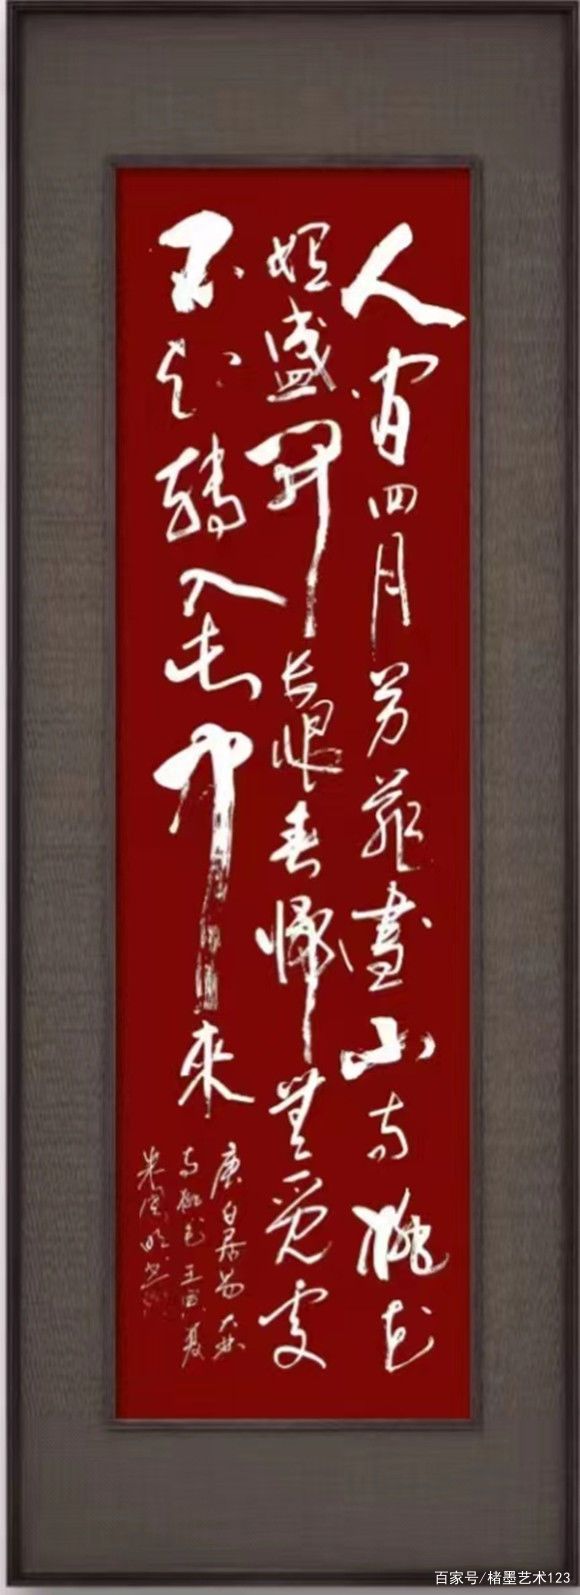 人間四月芳菲盡山寺桃花
始盛開長恨春歸無覓處
不知轉入此中來
唐白居易大林
寺桃花壬寅夏
百家号/楮墨艺术123